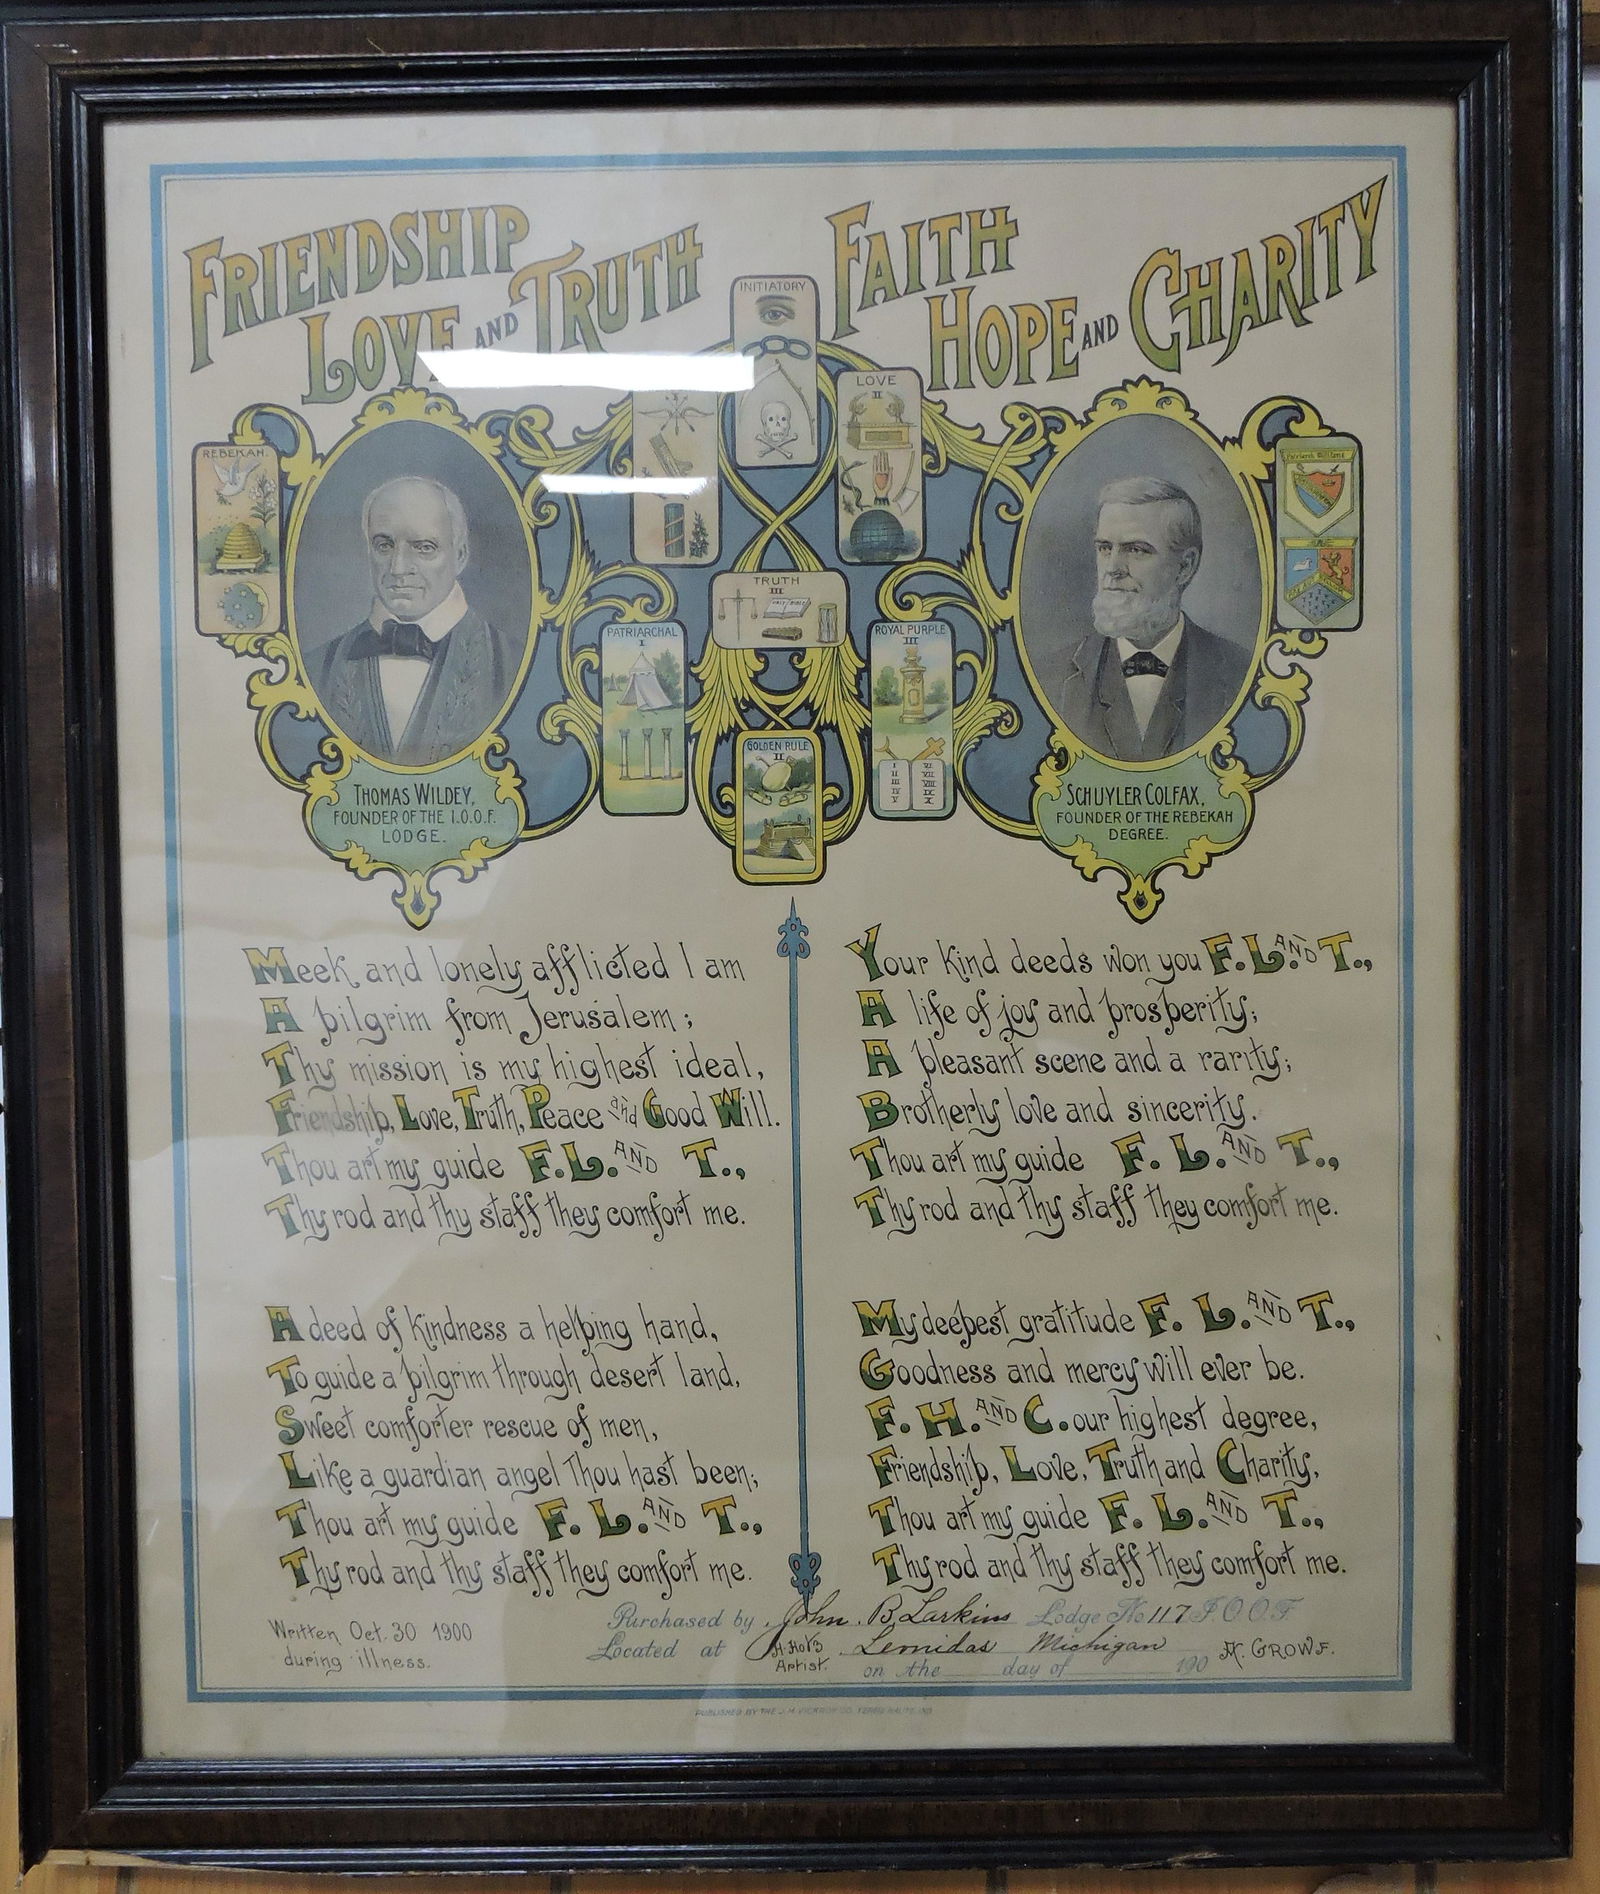 FRIENDSHIP
LOVE AND TRUTH
FAITH
HOPE AND CHARITY
INITIATORY
LOVE
II
REBEKAH.
Patriarch Militant
TRUTH
III
HOLY BIBLE
PATRIARCHAL
I
ROYAL PURPLE
III
I
II
III
IV
V
VI
VII
VIII
IX
X
GOLDEN RULE
II
THOMAS WILDEY,
FOUNDER OF THE I.O.O.F.
LODGE.
SCHUYLER COLFAX,
FOUNDER OF THE REBEKAH
DEGREE.
Meek and lonely afflicted I am
A pilgrim from Jerusalem;
Thy mission is my highest ideal,
Friendship, Love, Truth, Peace and Good Will.
Thou art my guide F. L. AND T.,
Thy rod and thy staff they comfort me.
A deed of kindness a helping hand,
To guide a pilgrim through desert land,
Sweet comforter rescue of men,
Like a guardian angel Thou hast been;
Thou art my guide F. L. AND T.,
Thy rod and thy staff they comfort me.
Your kind deeds won you F. L. AND T.,
A life of joy and prosperity;
A pleasant scene and a rarity;
Brotherly love and sincerity.
Thou art my guide F. L. AND T.,
Thy rod and thy staff they comfort me.
My deepest gratitude F. L. AND T.,
Goodness and mercy will ever be.
F. H. AND C. our highest degree,
Friendship, Love, Truth and Charity,
Thou art my guide F. L. AND T.,
Thy rod and thy staff they comfort me.
Written Oct. 30 1900
during illness.
Purchased by John B Larkins Lodge No 117 I.O.O.F
Located at Leonidas Michigan
on the day of 190
Artist.
M. GROWF.
PUBLISHED BY THE J.M. TERRE HAUTE, IND